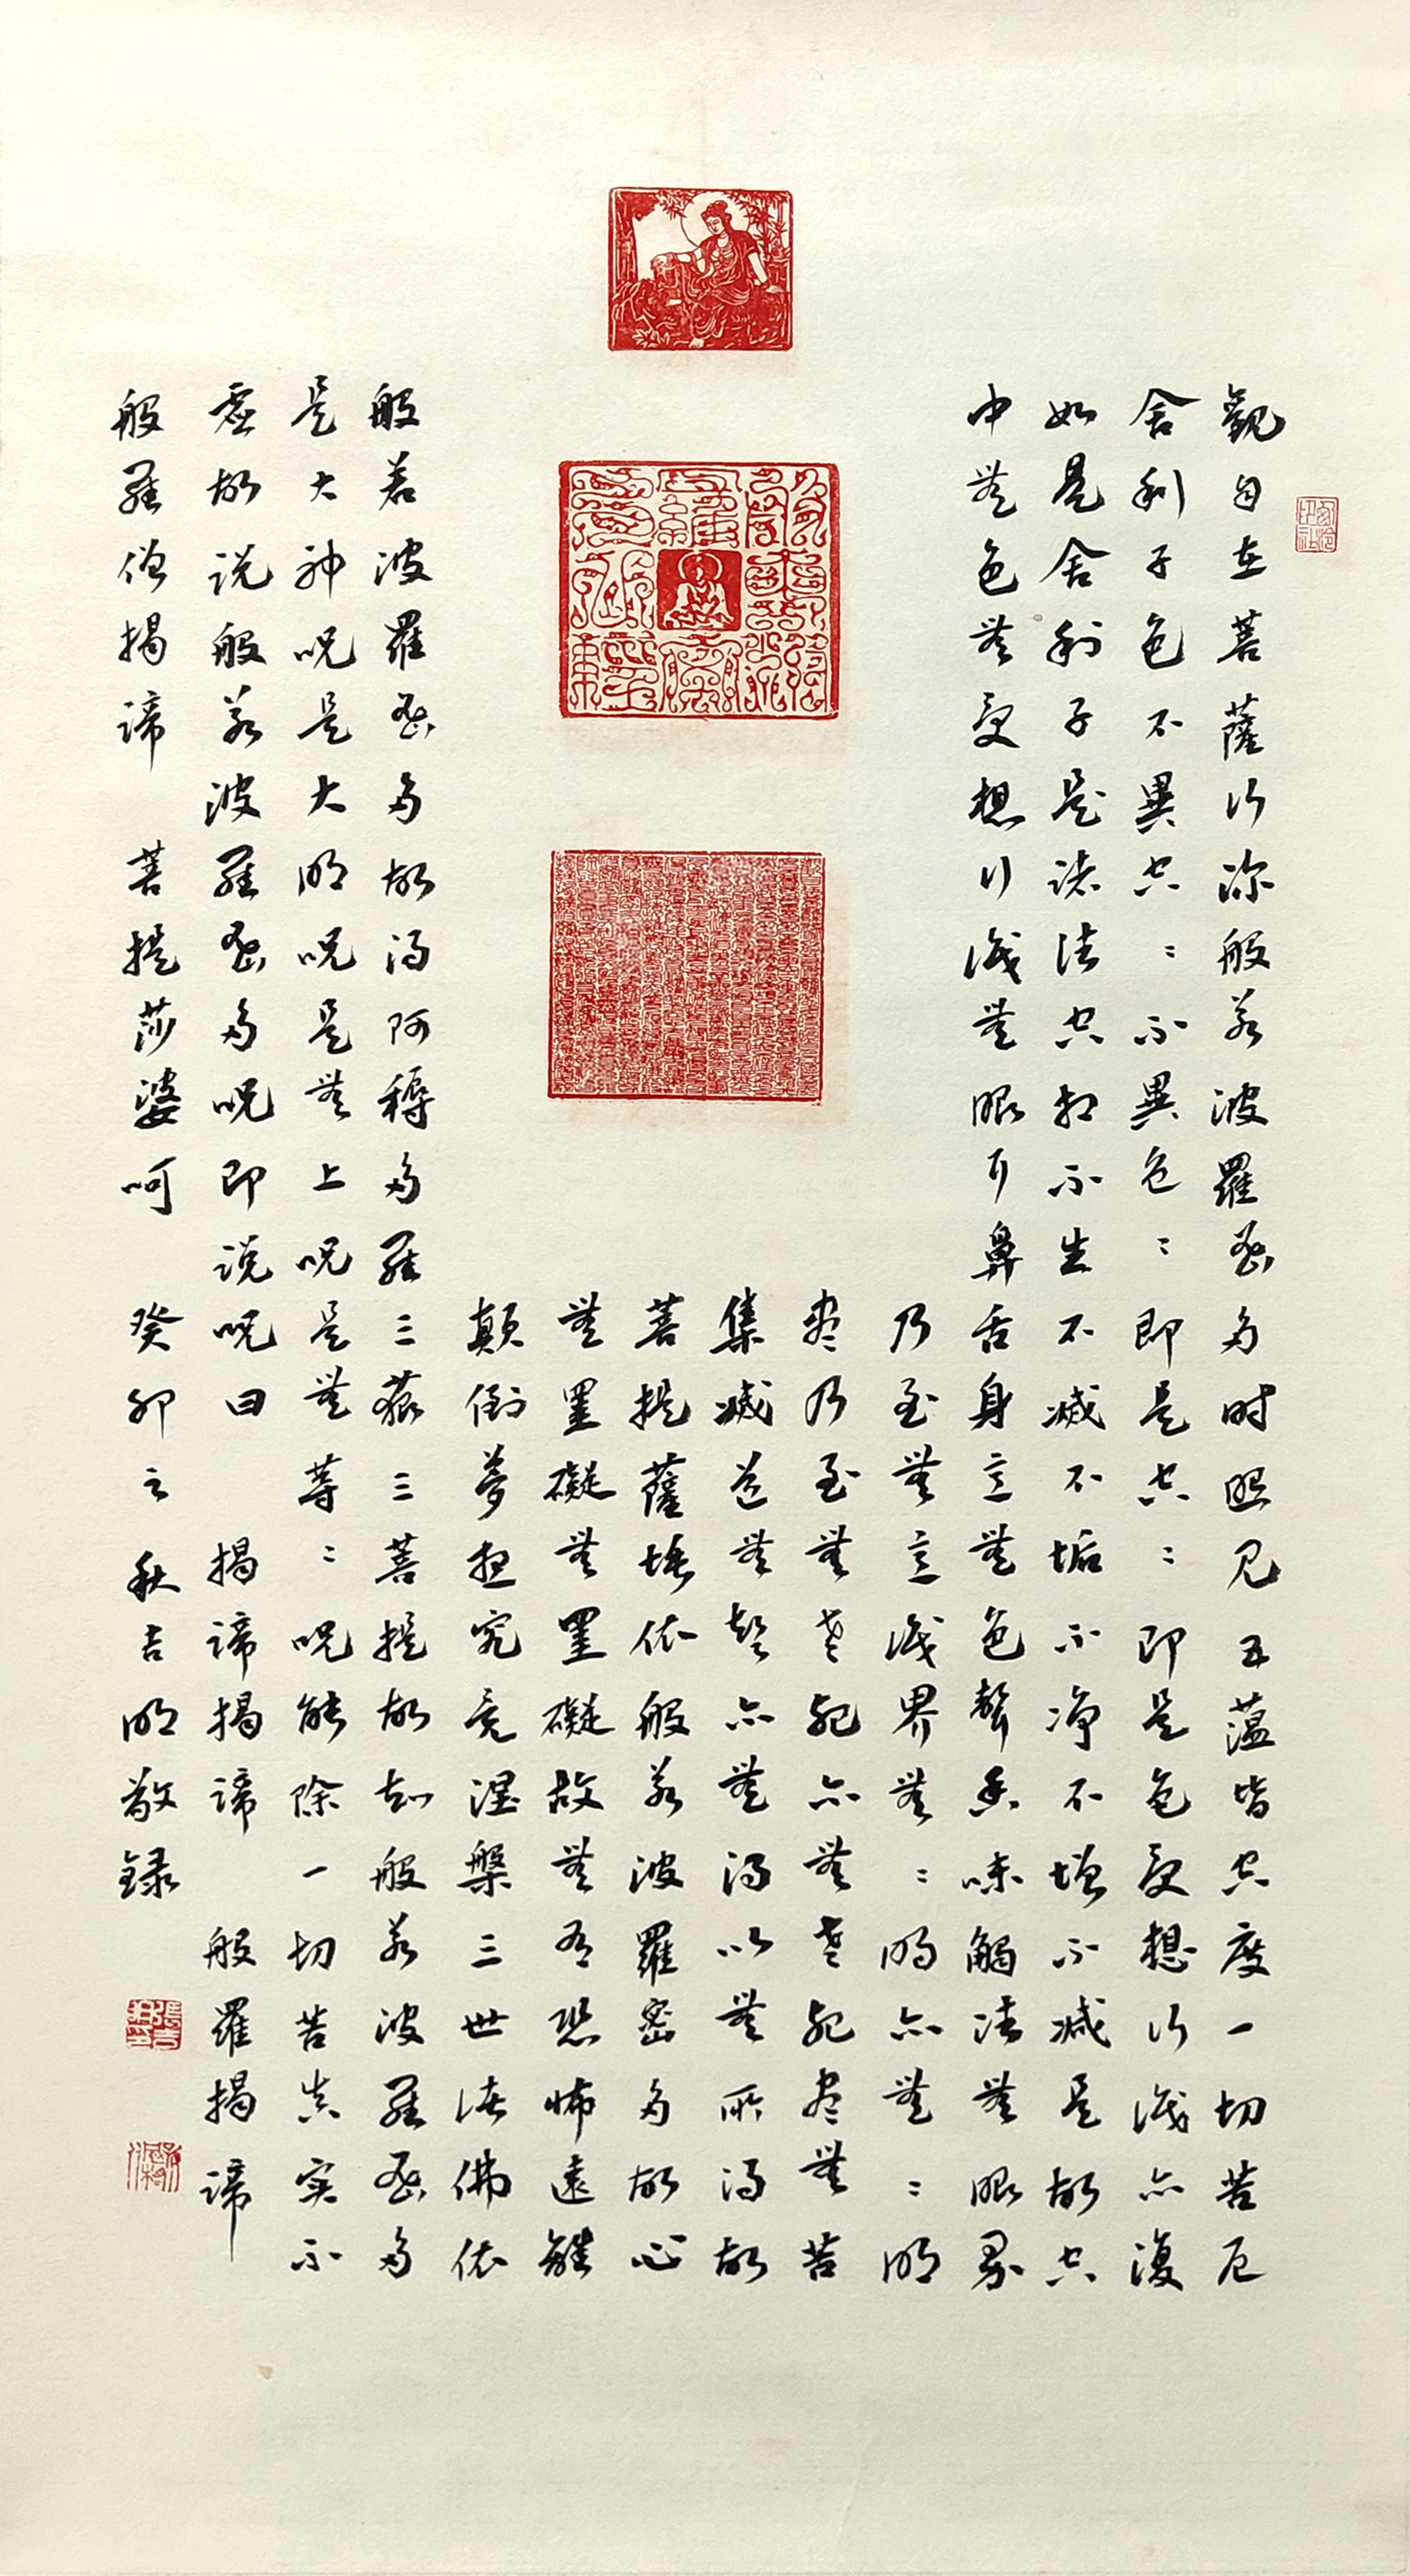 觀自在菩薩行深般若波羅蜜多时照见五蕴皆空度一切苦厄
舍利子色不異空〻不異色〻即是空〻即是色受想行識亦復
如是舍利子是諸法空相不生不滅不垢不净不增不减是故空
中無色無受想行識無眼耳鼻舌身意無色聲香味觸法無眼界
乃至無意識界無〻明亦無〻明
盡乃至無老死亦無老死盡無苦
集滅道無智亦無得以無所得故
菩提薩埵依般若波羅密多故心
無罣礙無罣礙故無有恐怖遠離
顛倒夢想究竟涅槃三世諸佛依
般若波羅蜜多故得阿耨多羅三藐三菩提故知般若波羅蜜多
是大神呪是大明呪是無上呪是無等〻呪能除一切苦真实不
虚故说般若波羅蜜多呪即说呪曰 揭諦揭諦 般羅揭諦
般羅僧揭諦 菩提莎婆呵 癸卯之秋吉明敬録